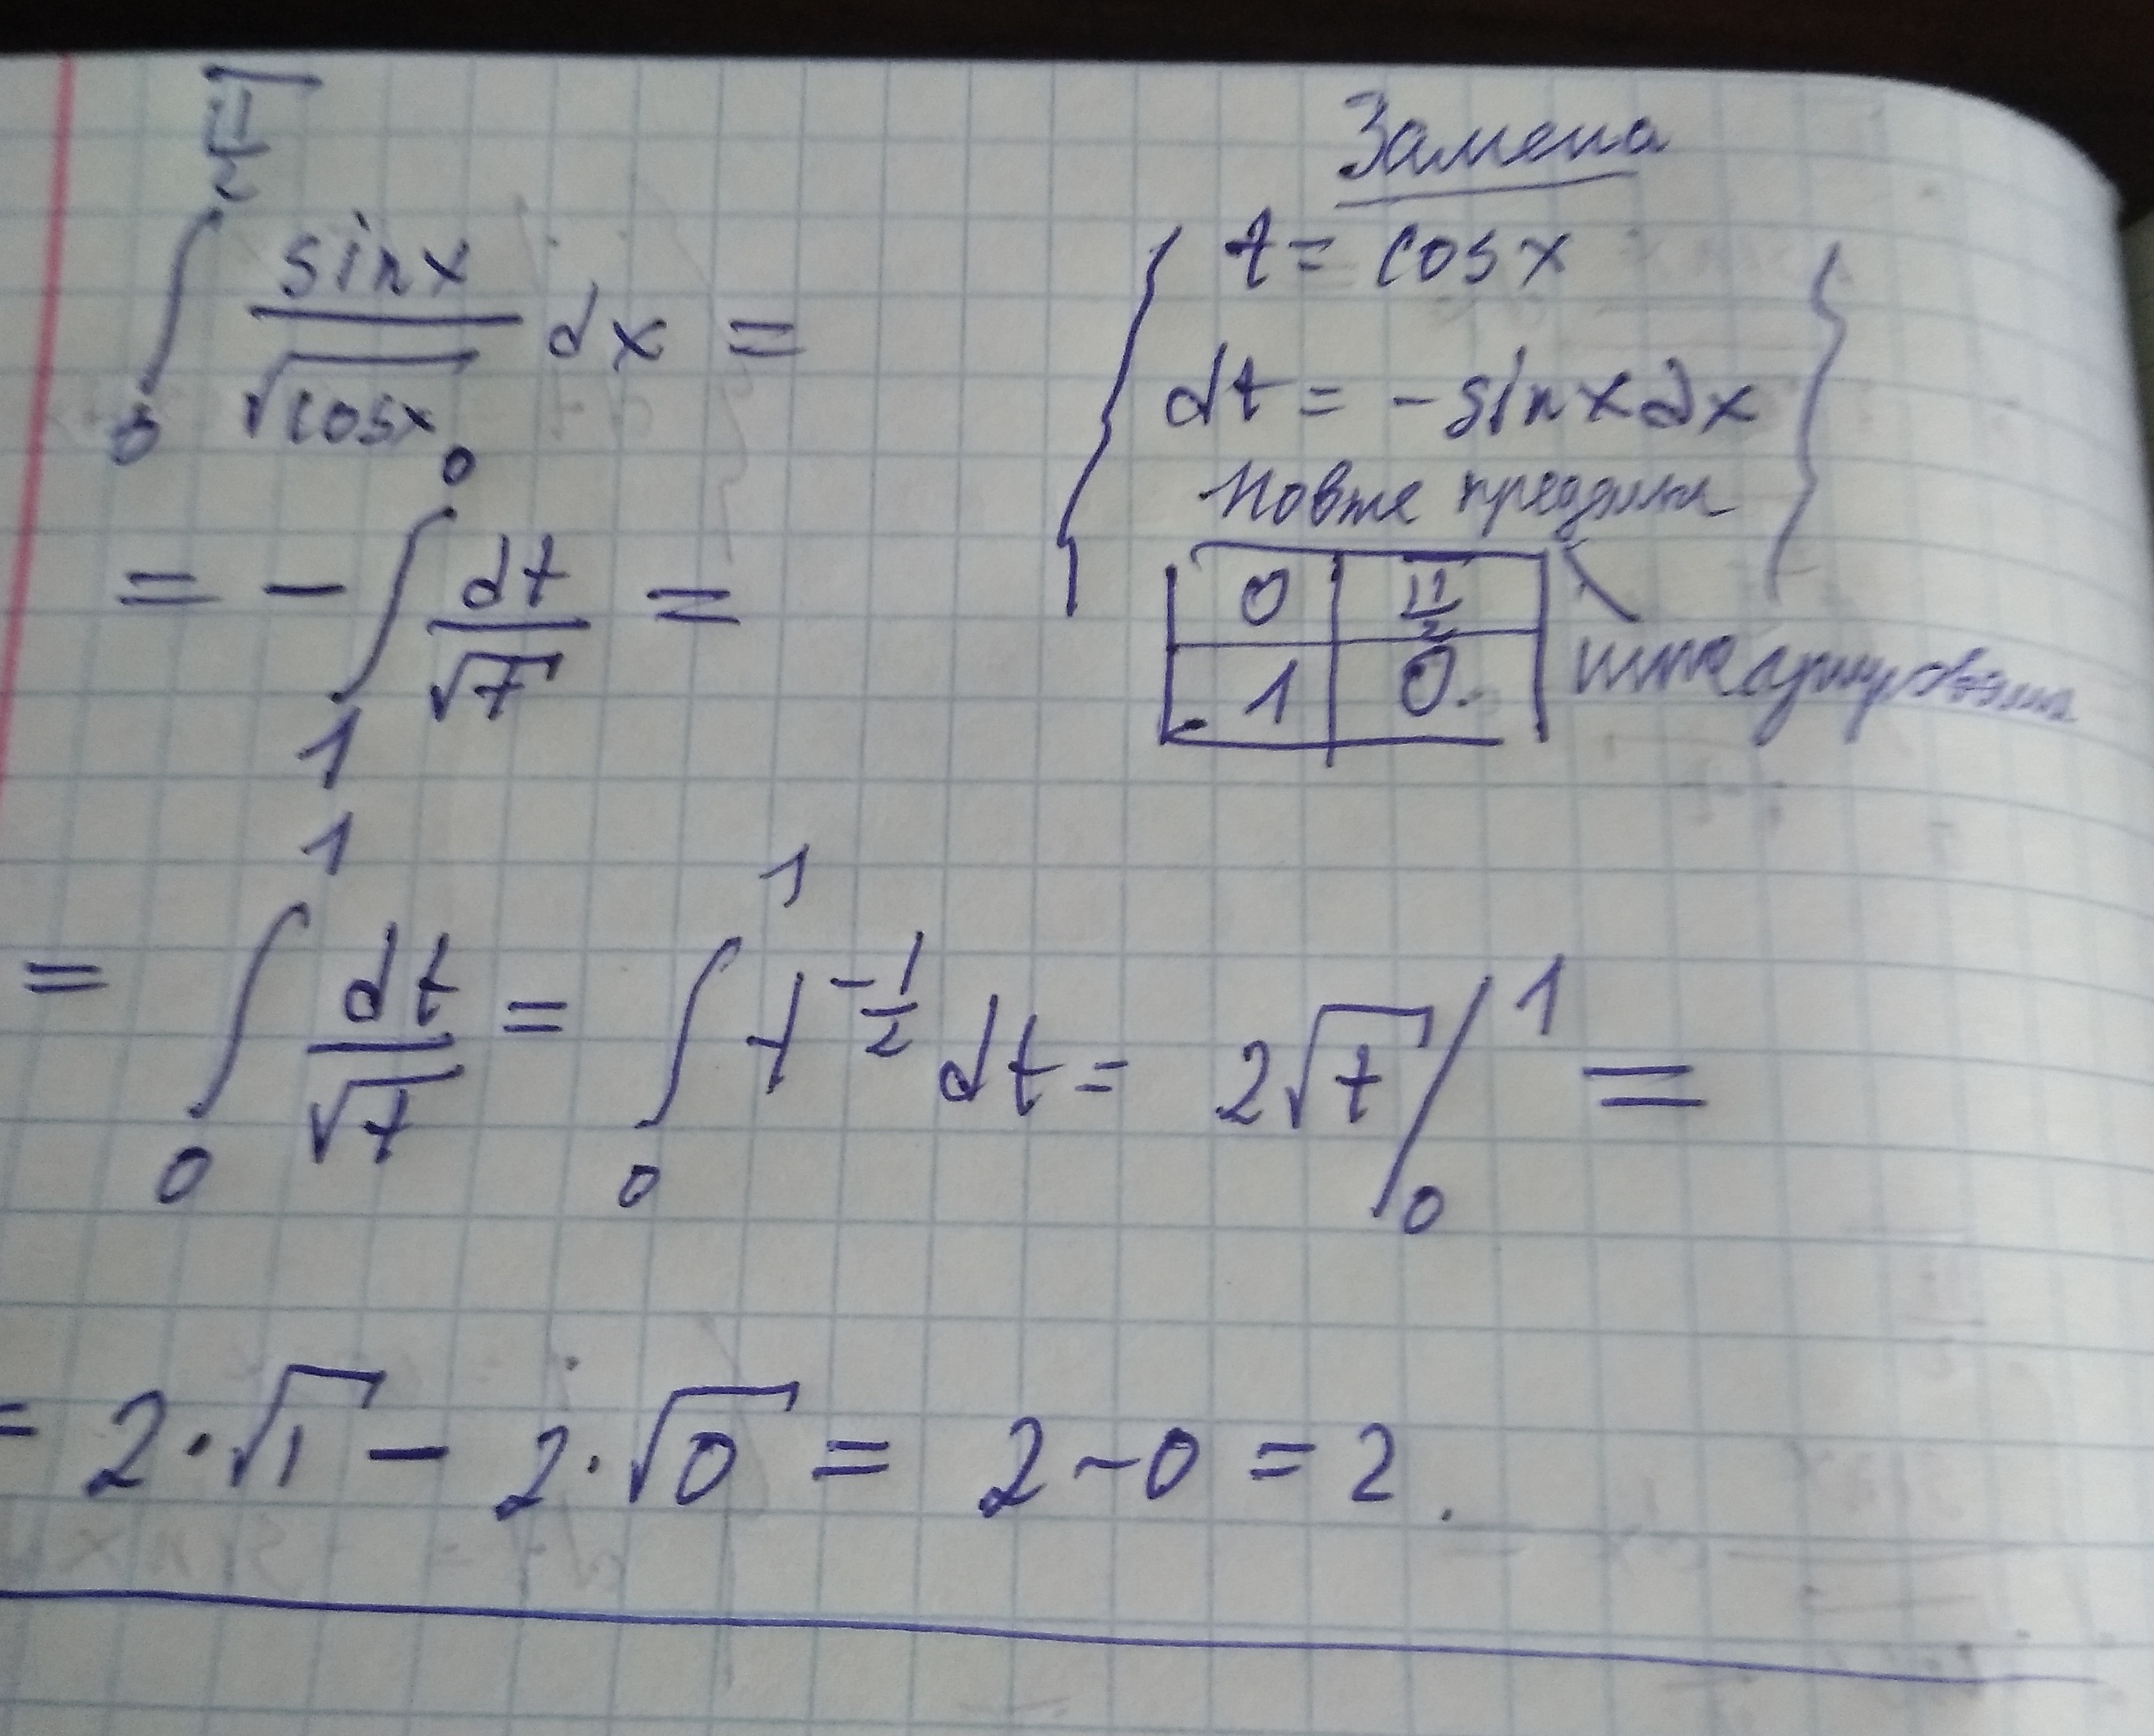 ∫₀^(π/2) sinx/√cosx dx =
Замена
t = cosx
dt = -sinxdx
Новые пределы
интегрирования
0 | π/2
1 | 0
= - ∫₁⁰ dt/√t =
= ∫₀¹ dt/√t = ∫₀¹ t^(-1/2) dt = 2√t /₀¹ =
= 2·√1 - 2·√0 = 2-0 = 2.